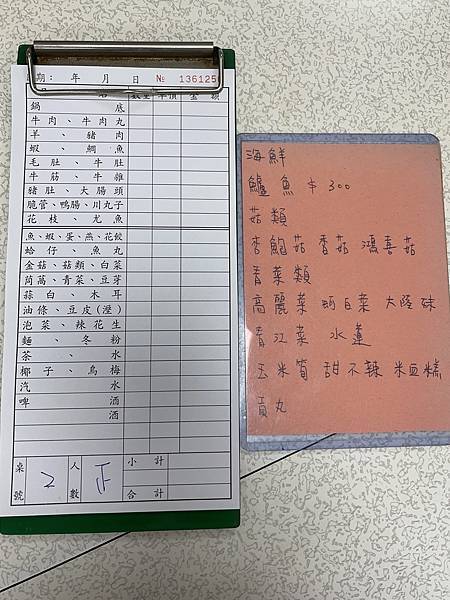 期: 年 月 日 № 136125
名 數量 單價 金額
鍋底
牛肉、牛肉丸
羊、豬肉
蝦、鯛魚
毛肚、牛肚
牛筋、牛雜
豬肚、大腸頭
脆管、鴨腸、川丸子
花枝、尤魚
魚、蝦、蛋、燕、花餃
蛤仔、魚丸
金菇、菇類、白菜
茼萵、青菜、豆芽
蒜白、木耳
油條、豆皮(溼)
泡菜、辣花生
麵、冬粉
茶、水
椰子、烏梅
汽水
啤酒
酒
桌號 2 人數 正 小計
合計
海鮮
鱸魚 $300
菇類
杏鮑菇 香菇 鴻喜菇
青菜類
高麗菜 娃白菜 大陸妹
青江菜 水蓮
玉米筍 甜不辣 米血糕
貢丸